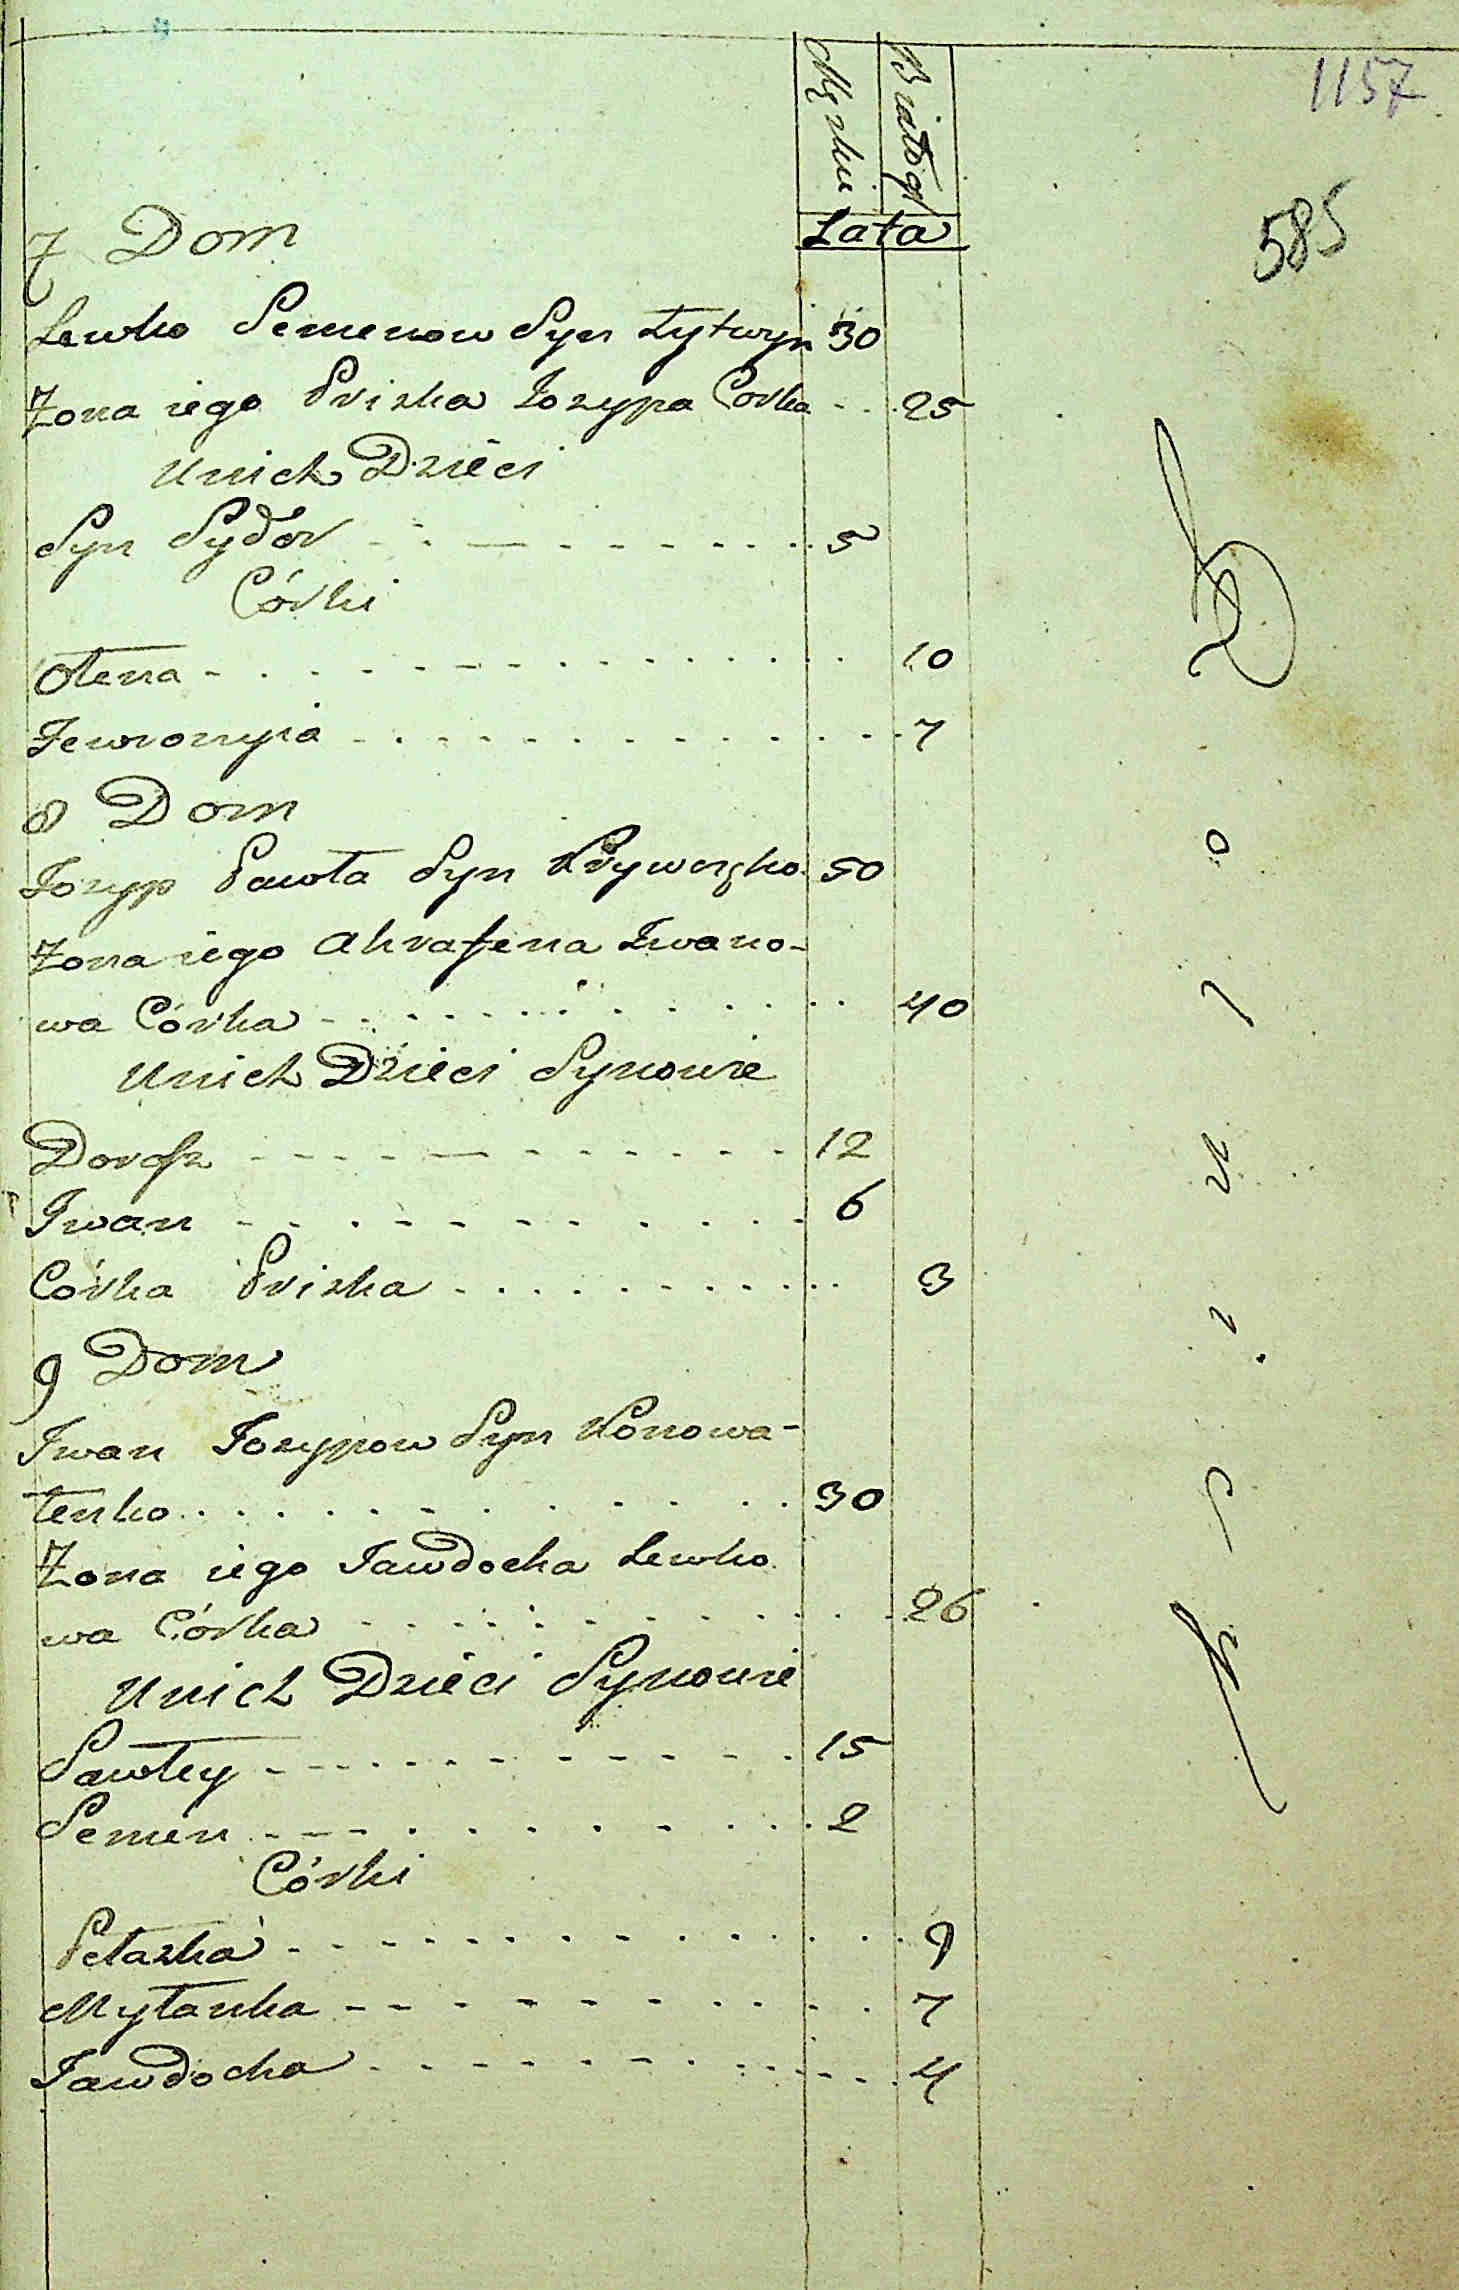 1157
585
Męzkie
Białogł
Lata
7 Dom
Lewko Semenow Syn Łytwyn 30
Zona iego Priska Jozypa Corka 25
Unich Dzieci
Syn Sydor 5
Córki
Ołena 10
Jewronyia 7
8 Dom
Jozyp Pawła Syn 50
Zona iego Ahrafena Iwano-
wa Córka 40
Unich Dzieci Synowie
Dorosz 12
Iwan 6
Córka Priska 3
9 Dom
Iwan Jozypow Syn Konowa-
łenko 30
Zona iego Jawdocha Lewko
wa Córka 26
Unich Dzieci Synowie
Pawłey 15
Semen 2
Córki
Pełazka 9
Myłanka 7
Jawdocha 4